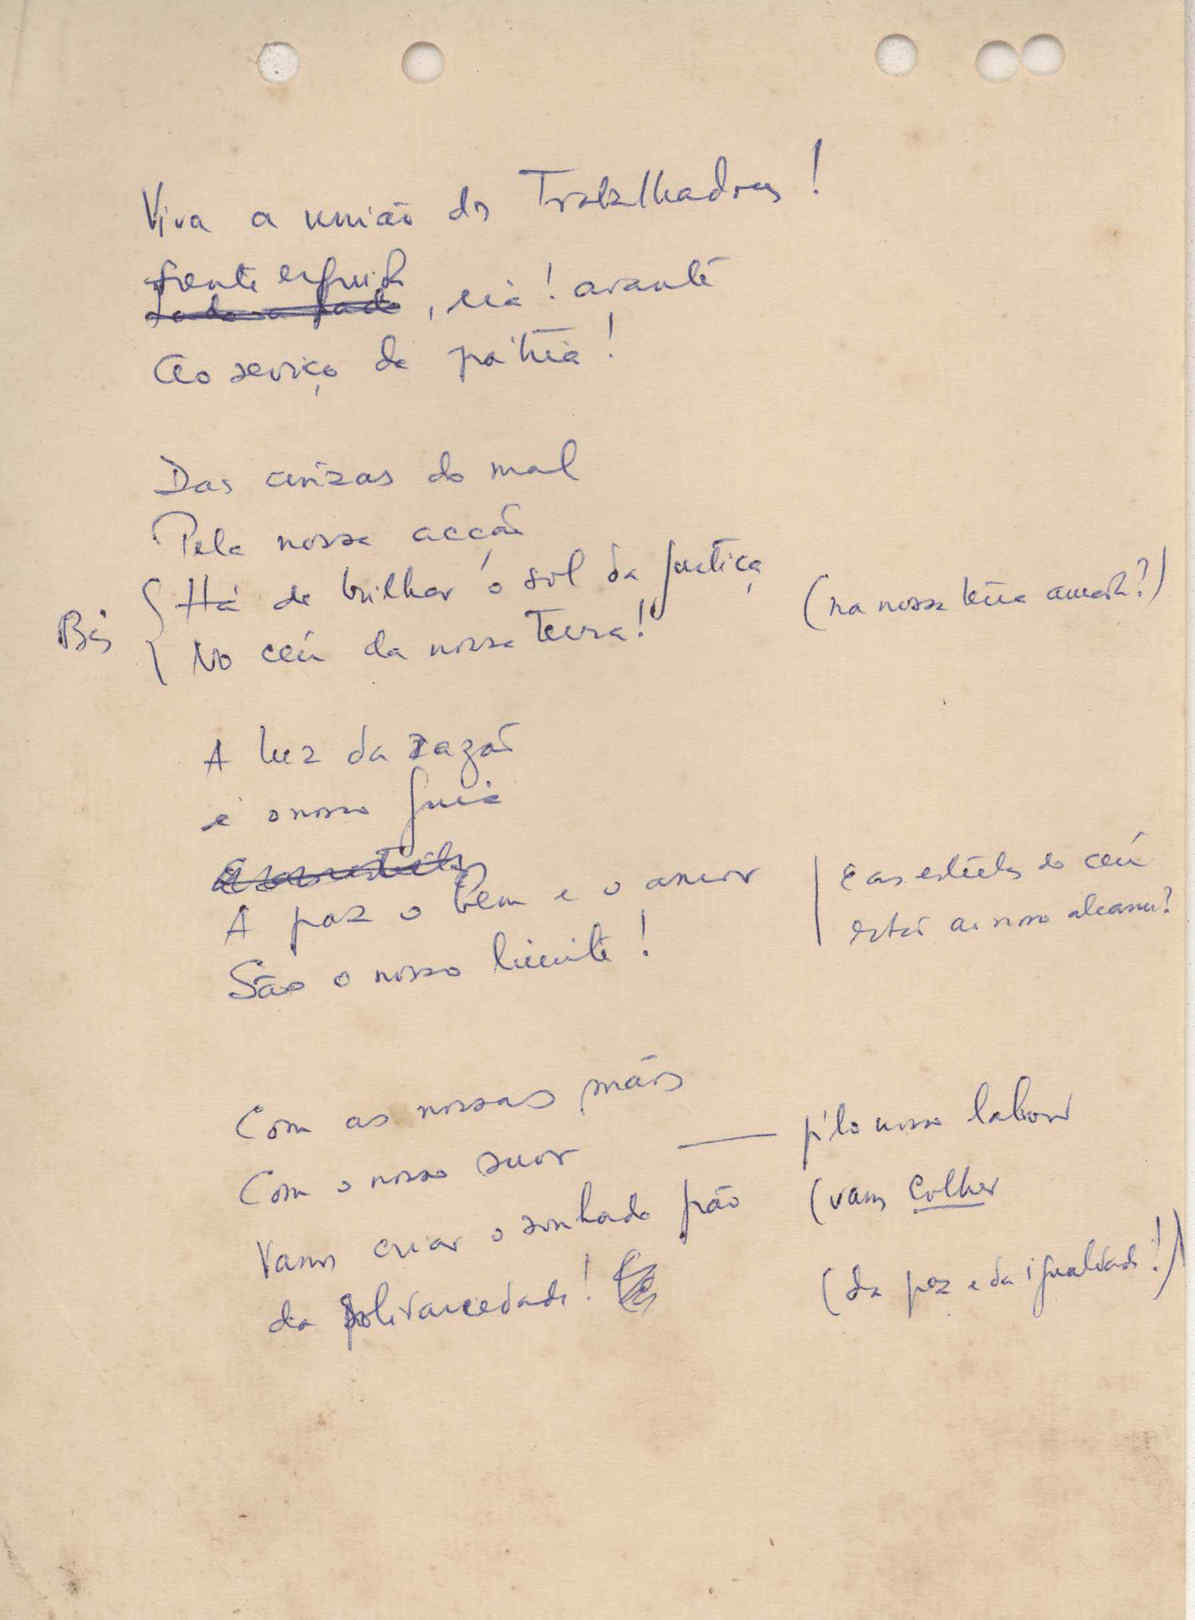 Viva a união dos Trabalhadores!
frente erguida
lado a lado, eia! avante
Ao serviço da pátria!
Das cinzas do mal
Pela nossa acção
Bis { Há de brilhar o sol da justiça
No céu da nossa Terra! (na nossa terra amada?)
A luz da razão
é o nosso guia
A paz o bem e o amor | e as estrelas do céu
São o nosso limite! estão ao nosso alcance?
Com as nossas mãos
Com o nosso suor — pelo nosso labor
Vamos criar o sonhado pão (vamos colher
da solidariedade! (da paz e da igualdade!)